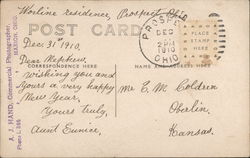 Worline residence, Prospect, Ohio
POST CARD
Dec 31st 1910.
Dear Nephew,
CORRESPONDENCE HERE
wishing you and
yours a very happy
New Year,
Yours truly,
Aunt Eunice.
PROSPECT
DEC
2 PM
1910
OHIO
PLACE
STAMP
HERE
NAME AND ADDRESS HERE
Mr E. M. Coldren
Oberlin,
Kansas.
A. J. HAND, Commercial Photographer,
MARION, OHIO.